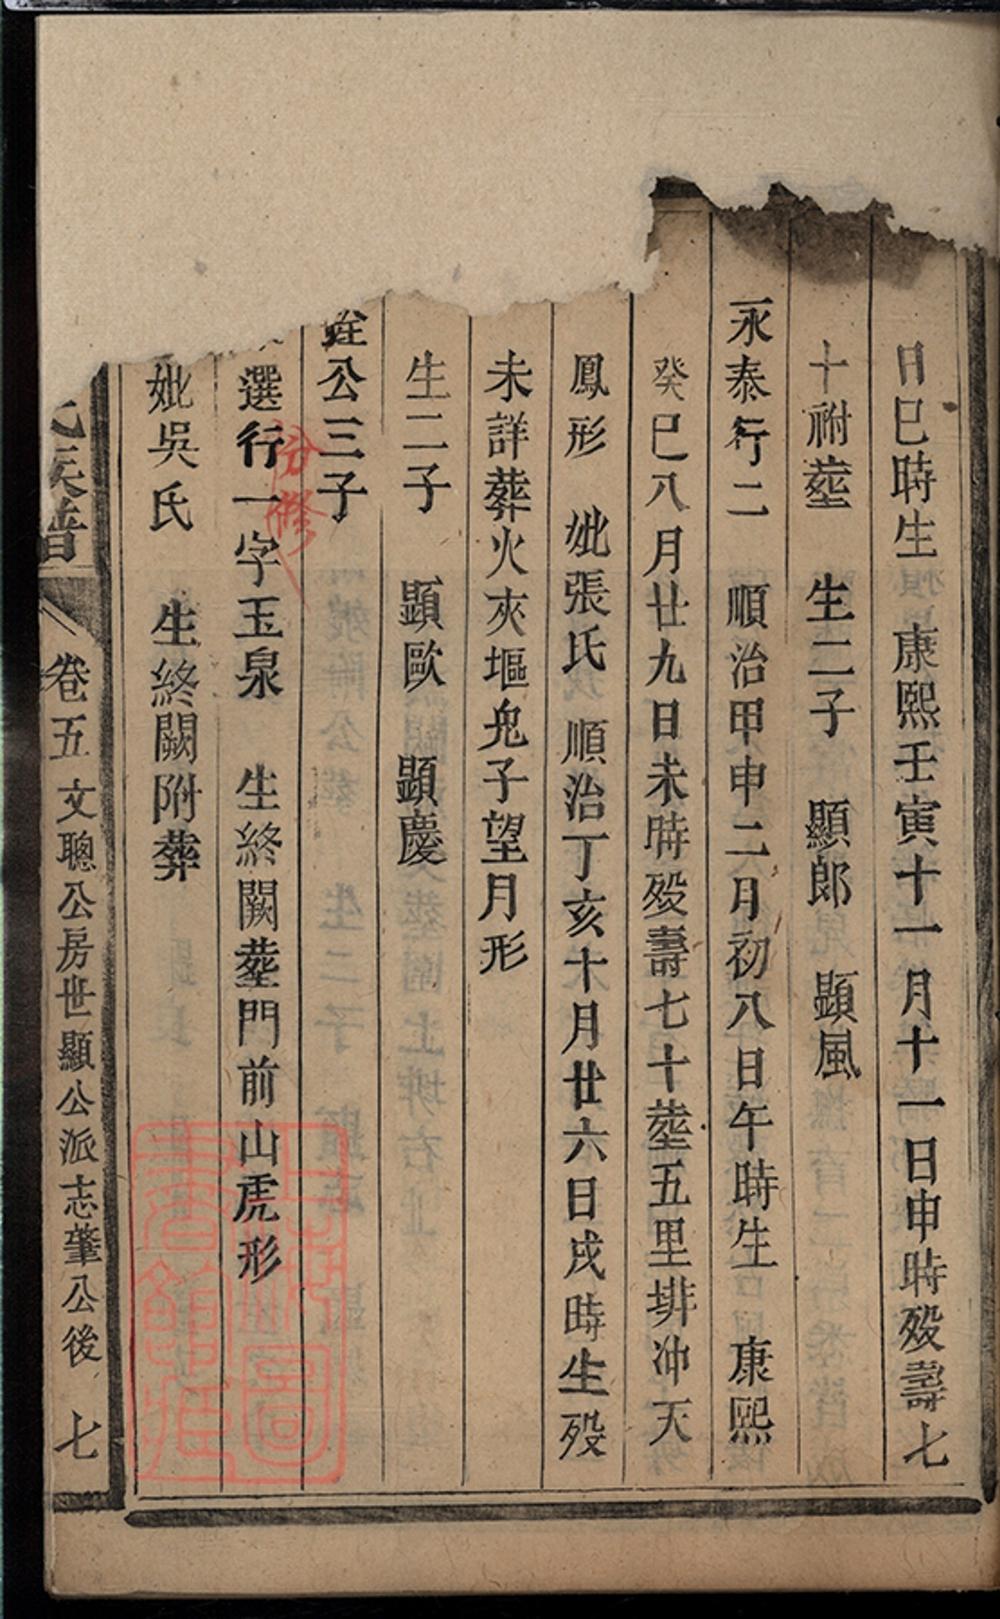 日巳時生 康熙壬寅十一月十一日申時歿壽七
十祔塟 生二子 顯郎 顯風
永泰行二 順治甲申二月初八日午時生 康熙
癸巳八月廿九日未時歿壽七十塟五里排冲天
鳳形 妣張氏 順治丁亥十月廿六日戌時生歿
未詳葬火夾塸兔子望月形
生二子 顯歐 顯慶
公三子
分修
選行一字玉泉 生終闕塟門前山虎形
妣吳氏 生終闕附葬
氏族譜 卷五 文聰公房世顯公派志肇公後 七
上海圖書館藏